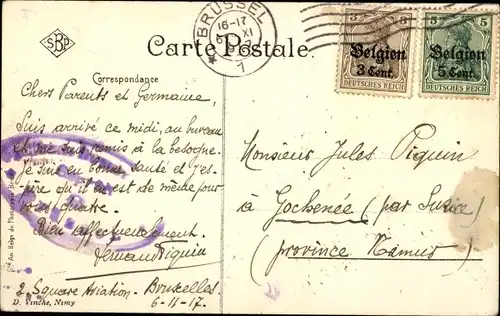 SBP
Carte Postale
BRÜSSEL
16-17
XI
1
3 3
Belgien
3 Cent.
DEUTSCHES REICH
5 5
Belgien
5 Cent.
DEUTSCHES REICH
Correspondance
Chers Parents et Germaine,
Suis arrivé ce midi, au bureau
et me suis remis à la besogne.
Je suis en bonne santé et j'es-
père qu'il en est de même pour
vous quatre.
Bien affectueusement.
Fernand Piquin
2, Square Aviation - Bruxelles
6-11-17.
Monsieur Jules Piquin
à Gochenée (par Surice)
(province Namur)
D. Vinche, Nimy